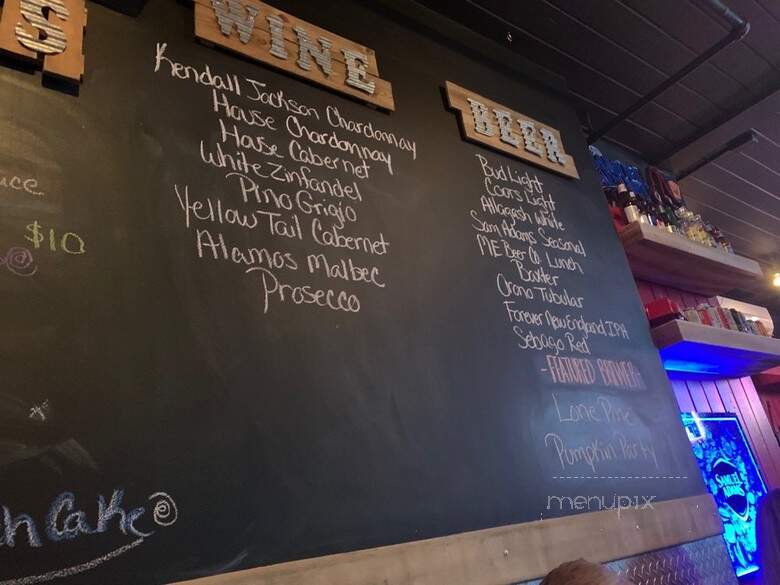 S
WINE
Kendall Jackson Chardonnay
House Chardonnay
House Cabernet
White Zinfandel
Pino Grigio
Yellow Tail Cabernet
Alamos Malbec
Prosecco
BEER
Bud Light
Coors Light
Allagash White
Sam Adams Seasonal
ME Beer Co. Lunch
Baxter
Orono Tubular
Forever New England IPA
Sebago Red
-FEATURED BREWER-
Lone Pine
Pumpkin Party
uce
$10
h Cake
menupix
SAMUEL ADAMS